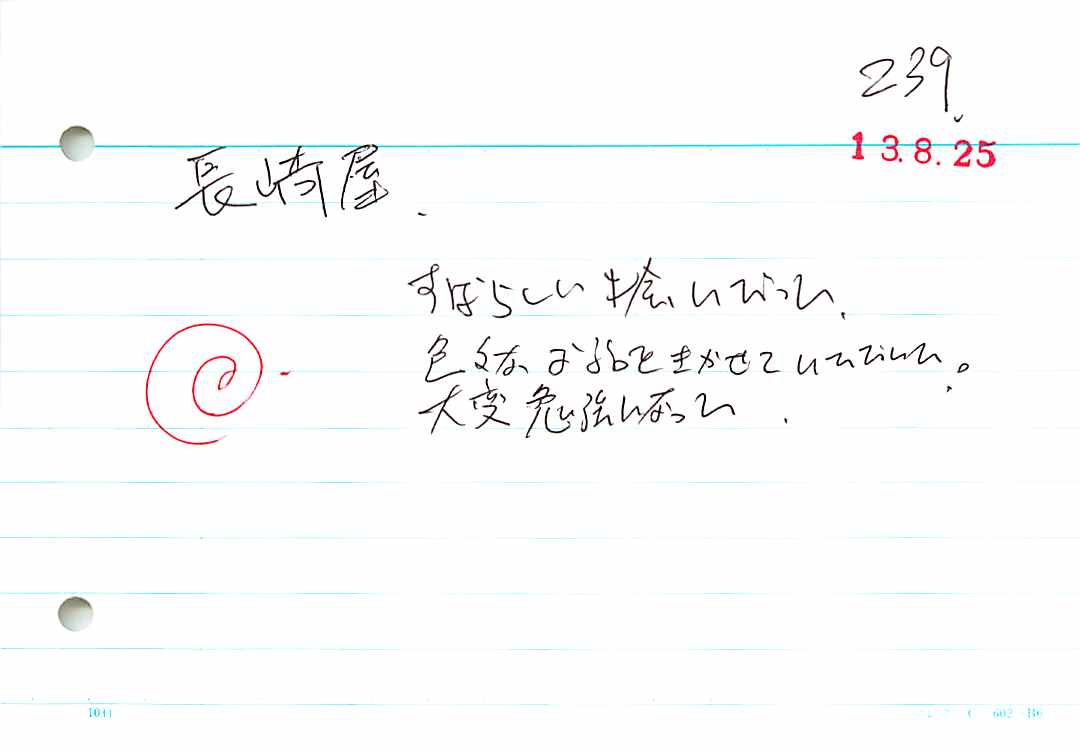 239
13.8.25
長崎屋.
すばらしい機会いただいた.
色々なお話をきかせていただいた。
大変勉強になった.
1041
602 B6